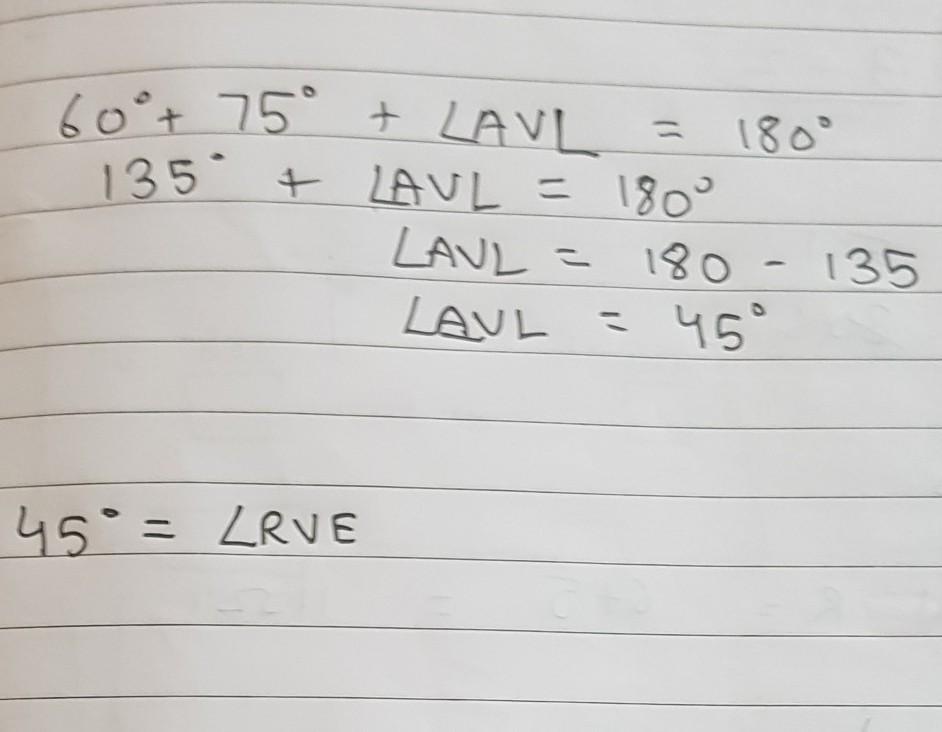 60° + 75° + ∠AVL = 180°
135° + ∠AVL = 180°
∠AVL = 180 - 135
∠AVL = 45°
45° = ∠RVE